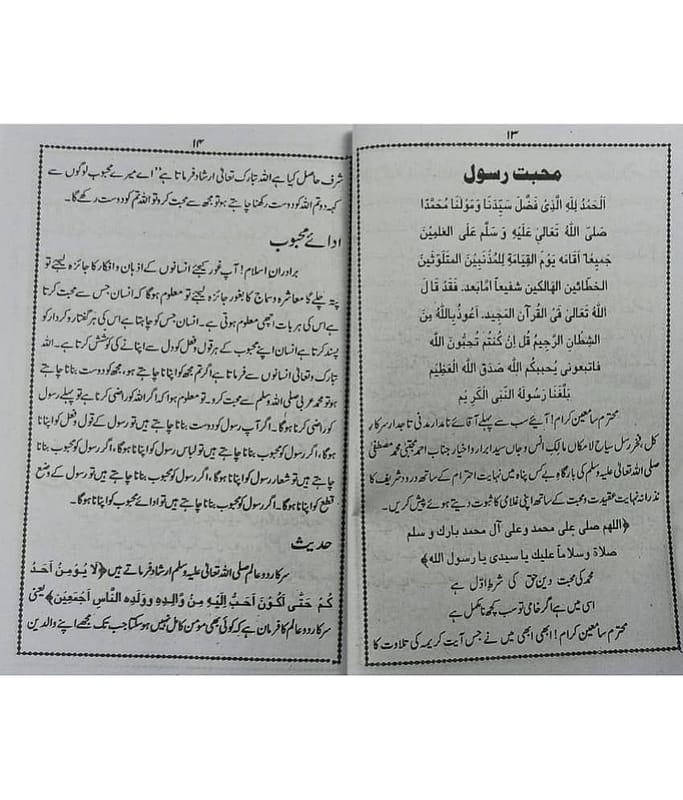 ۱۳
محبت رسول
اَلْحَمْدُ لِلّٰهِ الَّذِیْ فَضَّلَ سَیِّدَنَا وَ مَوْلٰنَا مُحَمَّدًا
صَلَّی اللّٰهُ تَعَالیٰ عَلَیْهِ وَ سَلَّم عَلَی الْعٰلَمِیْنَ
جَمِیعًا اَقَامَه یَوْمَ الْقِیَامَةِ لِلْمُذْنِبِیْنَ الْمُتَلَوِّثِیْنَ
الخطّائین الهالکین شفیعاً امّابعد. فَقَدْ قَا لَ
اللّٰهُ تَعَالیٰ فِی القُرآنِ المَجِید. اَعُوذُ بِاللّٰهِ مِنَ
الشیْطَانِ الرَّجِیْمِ قُل اِنْ کُنْتُم تُحِبُّونَ اللّٰه
فاتبعونی یُحببکم اللّٰه صَدَقَ اللّٰه الْعَظِیْم
بَلَّغَنَا رَسُولُهُ النَّبِی الْکَرِیْم
محترم سامعین کرام! آیئے سب سے پہلے آقائے نامدار مدنی تاجدار سرکار
کل، فخر رسل سیاح لامکاں مالک انس و جاں سید ابرار و اخیار جناب احمد مجتبیٰ محمد مصطفیٰ
صلی اللہ تعالیٰ علیہ وسلم کی بارگاہِ بے کس پناہ میں نہایت احترام کے ساتھ درود شریف کا
نذرانہ نہایت عقیدت و محبت کے ساتھ اپنی غلامی کا ثبوت دیتے ہوئے پیش کریں۔
﴿اللهم صلی علی محمد و علی آل محمد بارك و سلم
صلاة و سلاماً علیك یا سیدی یا رسول الله﴾
محمد کی محبت دین حق کی شرط اوّل ہے
اسی میں ہو اگر خامی تو سب کچھ نامکمل ہے
محترم سامعین کرام! ابھی ابھی میں نے جس آیت کریمہ کی تلاوت کا
۱۴
شرف حاصل کیا ہے اللہ تبارک تعالیٰ ارشاد فرماتا ہے "اے میرے محبوب لوگوں سے
کہہ دو تم اللہ کو دوست رکھنا چاہتے ہو تو مجھ سے محبت کرو تو اللہ تم کو دوست رکھے گا۔
ادائے محبوب
برادران اسلام! آپ غور کیجئے انسانوں کے اذہان و افکار کا جائزہ لیجئے تو
پتہ چلے گا معاشرہ و سماج کا بغور جائزہ لیجئے تو معلوم ہوگا کہ انسان جس سے محبت کرتا
ہے اس کی ہر بات اچھی معلوم ہوتی ہے۔ انسان جس کو چاہتا ہے اس کی ہر گفتار و کردار کو
پسند کرتا ہے انسان اپنے محبوب کے ہر قول و فعل کو دل سے اپنانے کی کوشش کرتا ہے۔ اللہ
تبارک و تعالیٰ انسانوں سے فرماتا ہے اگر تم مجھ کو اپنانا چاہتے ہو، مجھ کو دوست بنانا چاہتے
ہو تو محمد عربی صلی اللہ وسلم سے محبت کرو۔ تو معلوم ہوا کہ اگر اللہ کو راضی کرنا ہے تو پہلے رسول
کو راضی کرنا ہوگا۔ اگر آپ رسول کو دوست بنانا چاہتے ہیں تو رسول کے قول و فعل کو اپنانا
ہوگا، اگر رسول کو محبوب بنانا چاہتے ہیں تو لباس رسول کو اپنانا ہوگا، اگر رسول کو محبوب بنانا
چاہتے ہیں تو شعار رسول کو اپنانا ہوگا، اگر رسول کو محبوب بنانا چاہتے ہیں تو رسول کے وضع
قطع کو اپنانا ہوگا۔ اگر رسول کو محبوب بنانا چاہتے ہیں تو ادائے محبوب کو اپنانا ہوگا۔
حدیث
سرکار دو عالم صلی اللہ تعالیٰ علیہ وسلم ارشاد فرماتے ہیں ﴿لَا یُؤْمِنُ اَحَدُ
کُمْ حَتّٰی اَکُوْنَ اَحَبَّ اِلَیْهِ مِنْ وَالِدِهٖ وَ وَلَدِهٖ النَّاسِ اَجْمَعِیْنَ﴾ یعنی
سرکار دو عالم کا فرمان ہے کہ کوئی بھی مؤمن کامل نہیں ہو سکتا جب تک مجھے اپنے والدین